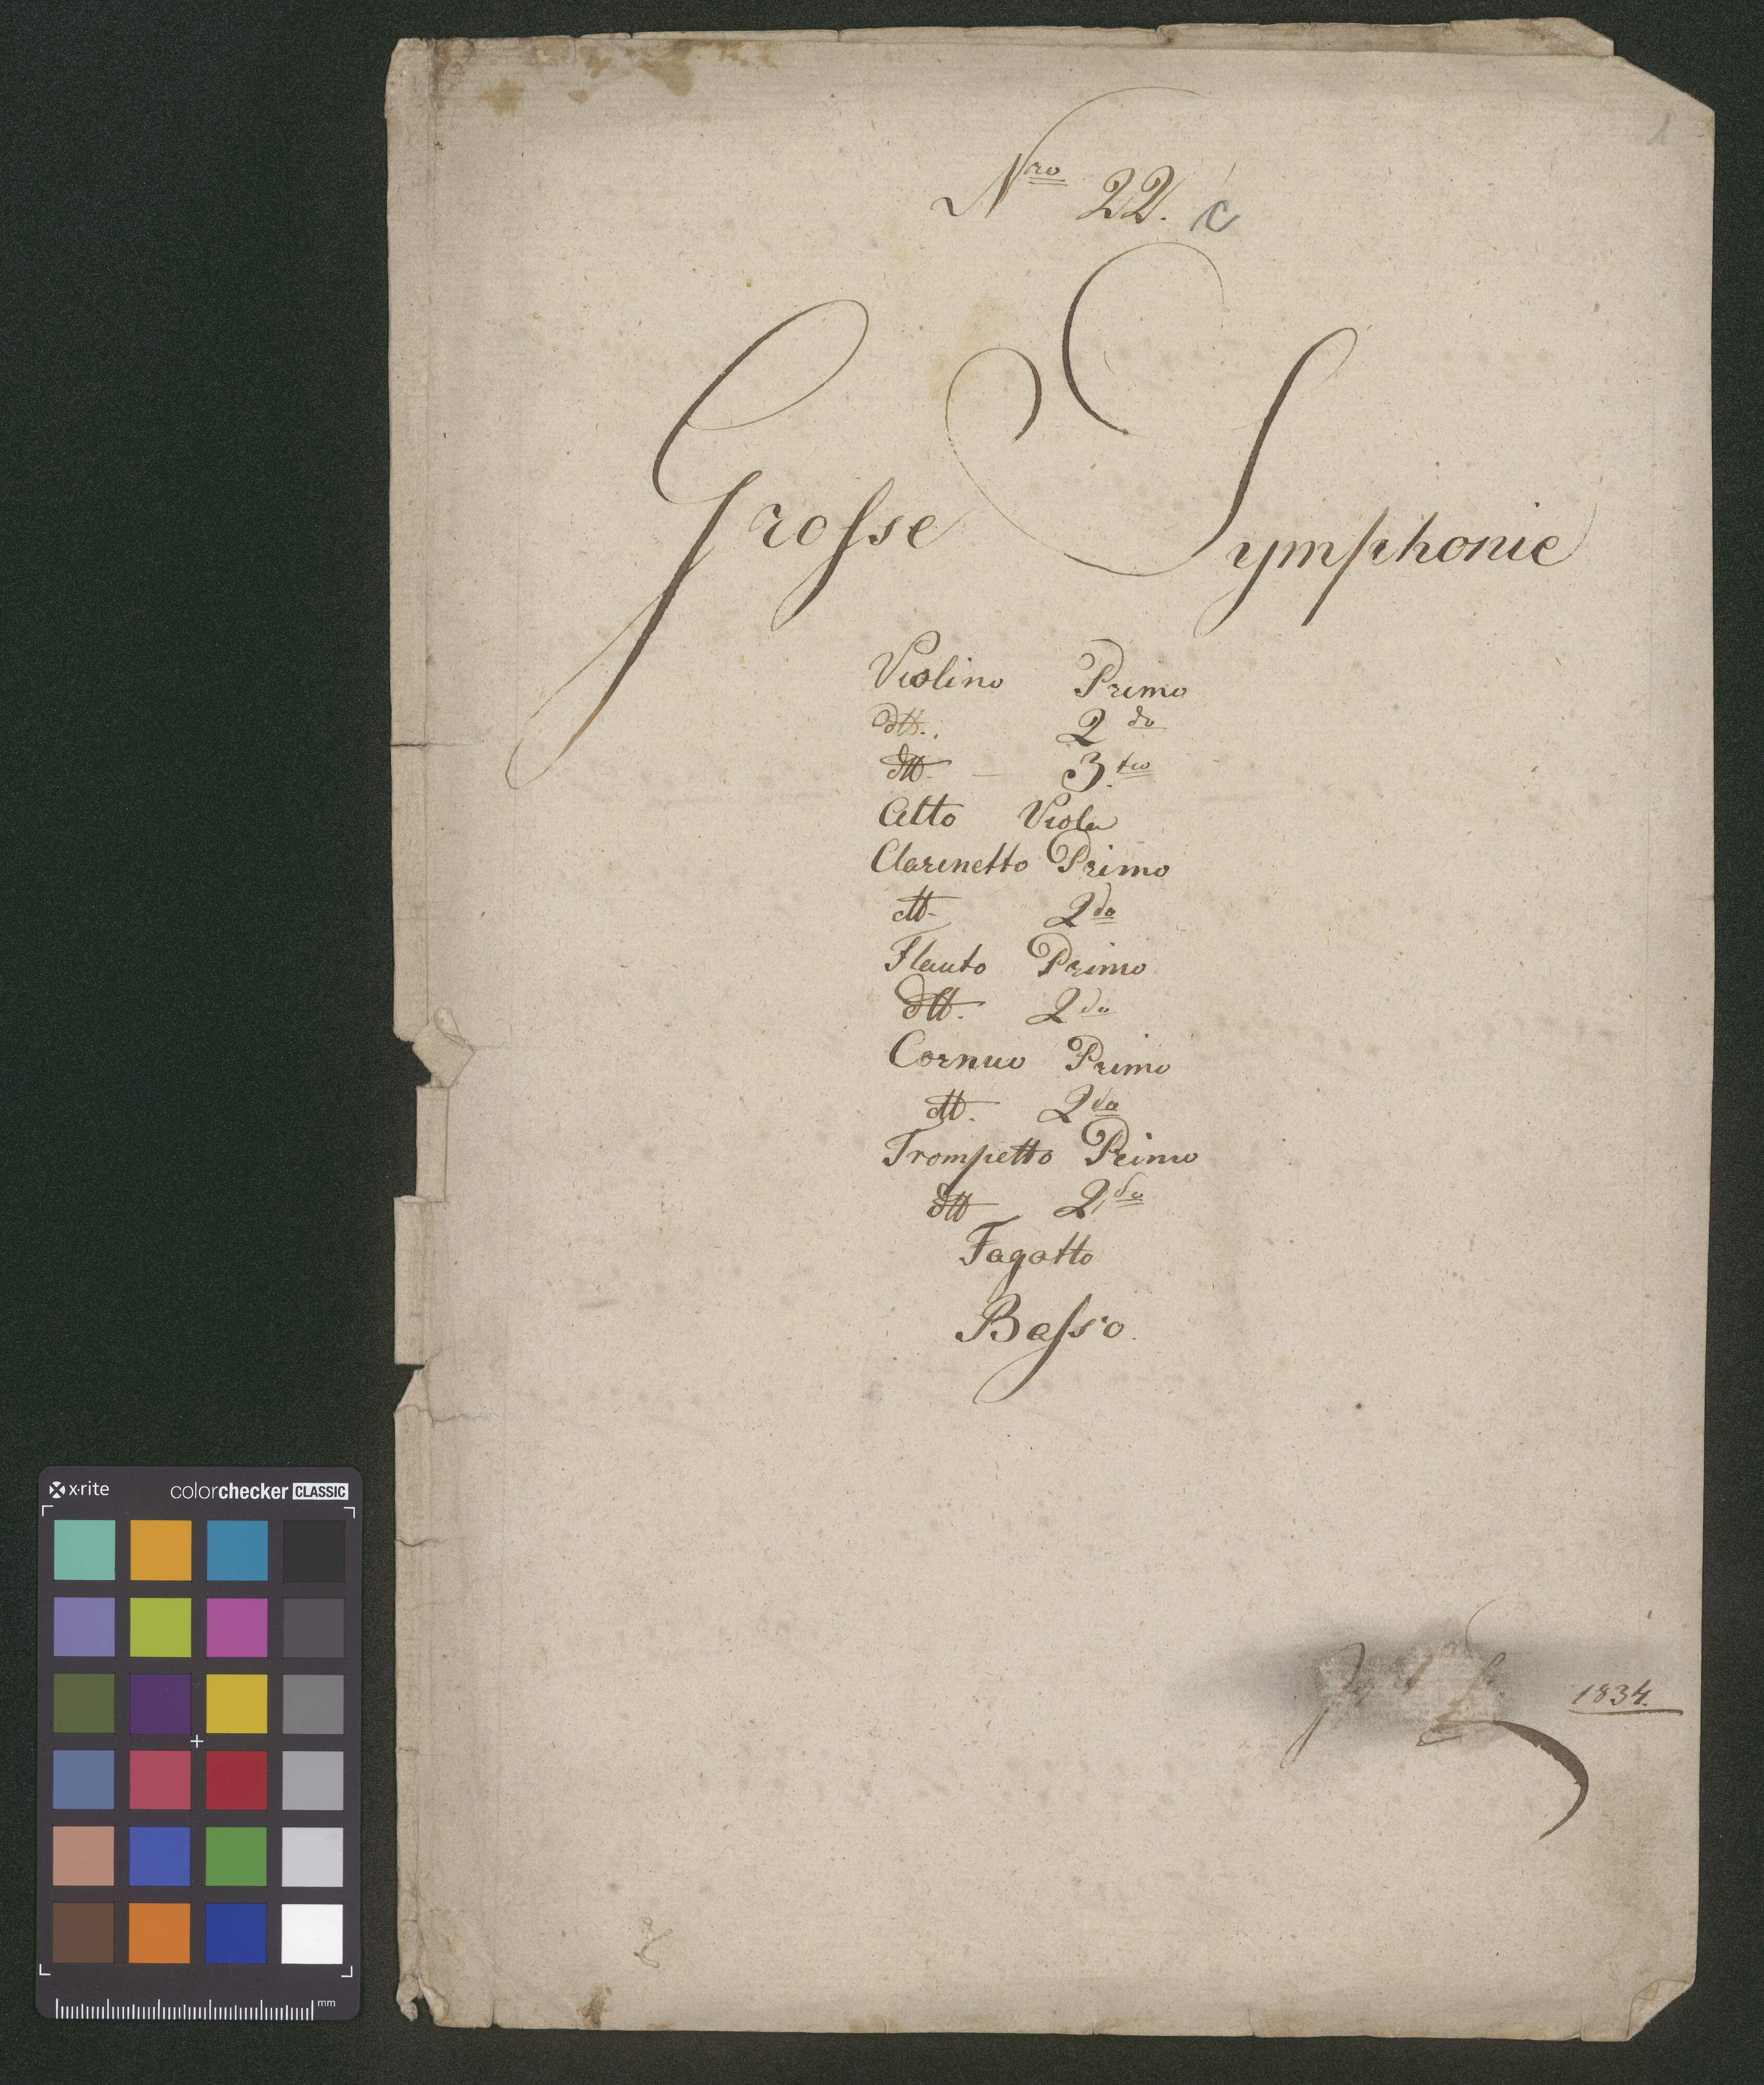 1
Nro 22. c
Grosse Symphonie
Violino Primo
dtt. 2do
dtt. — 3tio
Alto Viola
Clarinetto Primo
dtt. 2do
Flauto Primo
dtt. 2do
Cornuo Primo
dtt. 2do
Trompetto Primo
dtt 2do
Fagotto
Basso.
1834.
x·rite colorchecker CLASSIC
mm